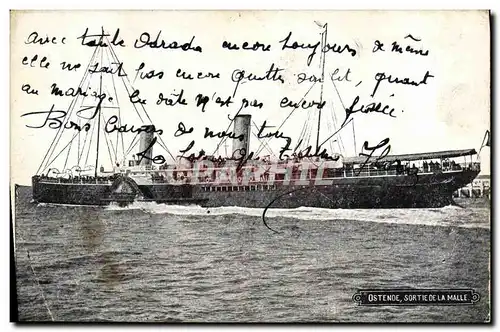 Avec tante Idrada encore toujours de même
elle ne sait pas encore quitter la lit, quant
au mariage la date n'est pas encore fixée.
Bons baisers de nous tous
OSTENDE, SORTIE DE LA MALLE.